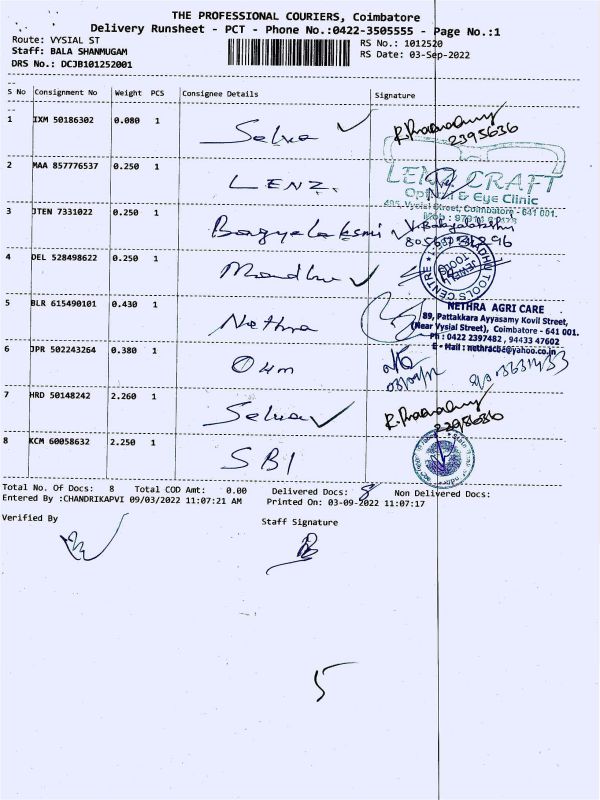 THE PROFESSIONAL COURIERS, Coimbatore
Delivery Runsheet - PCT - Phone No.:0422-3505555 - Page No.:1
Route: VYSIAL ST
RS No.: 1012520
Staff: BALA SHANMUGAM
RS Date: 03-Sep-2022
DRS No.: DCJB101252001
S No Consignment No Weight PCS Consignee Details Signature
1 IXM 50186302 0.080 1 Selva
2395636
2 MAA 857776537 0.250 1 LENZ.
LENZ CRAFT
Optical & Eye Clinic
405, Vysial Street, Coimbatore - 641 001.
3 JTEN 7331022 0.250 1 Bagyalaksmi
4 DEL 528498622 0.250 1 Madhu
TOOLS CENTRE
5 BLR 615490101 0.430 1 Nethra
NETHRA AGRI CARE
89, Pattakkara Ayyasamy Kovil Street,
(Near Vysial Street), Coimbatore - 641 001.
Ph : 0422 2397482 , 94433 47602
E - Mail : nethracbe@yahoo.co.in
6 JPR 502243264 0.380 1 Oum
7 HRD 50148242 2.260 1 Selva
8 KCM 60058632 2.250 1 SBI
Total No. Of Docs: 8 Total COD Amt: 0.00 Delivered Docs: 8 Non Delivered Docs:
Entered By :CHANDRIKAPVI 09/03/2022 11:07:21 AM Printed On: 03-09-2022 11:07:17
Verified By
Staff Signature
5